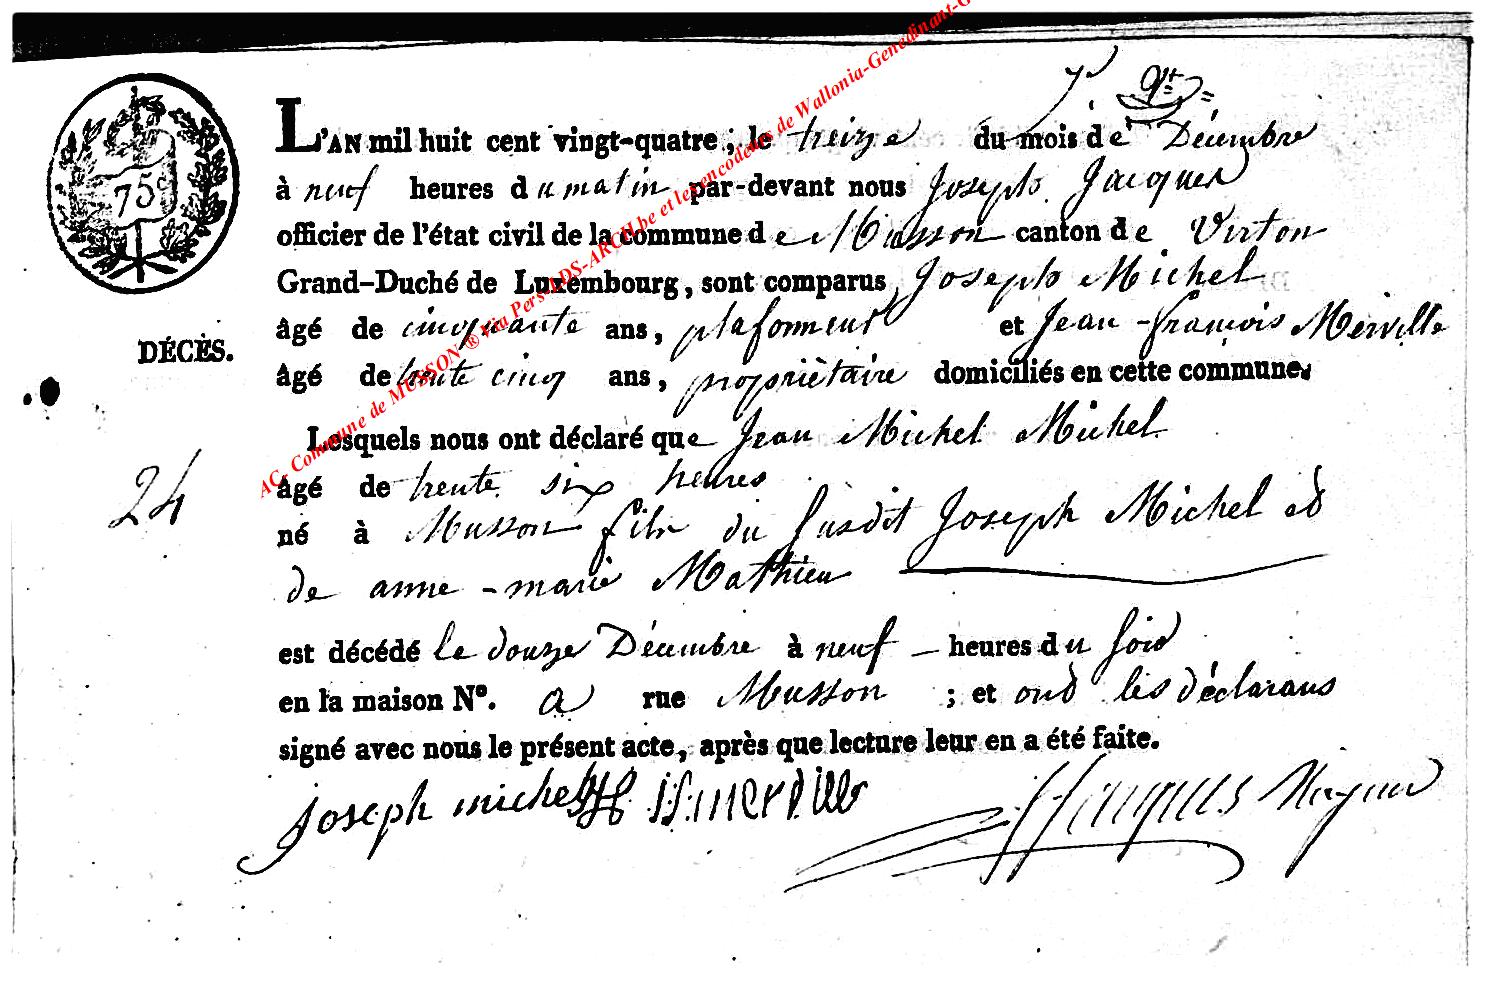 L'AN mil huit cent vingt-quatre; le treize du mois de Décembre
à neuf heures du matin par-devant nous Joseph Jacques
officier de l'état civil de la commune de Musson canton de Virton
Grand-Duché de Luxembourg, sont comparus Joseph Michel
âgé de cinquante ans, plafonneur et Jean-françois Merville
DÉCÈS.
âgé de trente cinq ans, propriètaire domiciliés en cette commune.
Lesquels nous ont déclaré que Jean Michel Michel
âgé de trente six heures
24
né à Musson fils du susdit Joseph Michel et
de anne-marie Mathieu
est décédé le douze Décembre à neuf heures du soir
en la maison N°. a rue Musson ; et ont les déclarans
signé avec nous le présent acte, après que lecture leur en a été faite.
joseph michel J.f. merville Jacques
75 c
AC. Commune de MUSSON ® via Pers-LDS-ARCH.be et les encodeurs de Wallonia-Genedinant-G